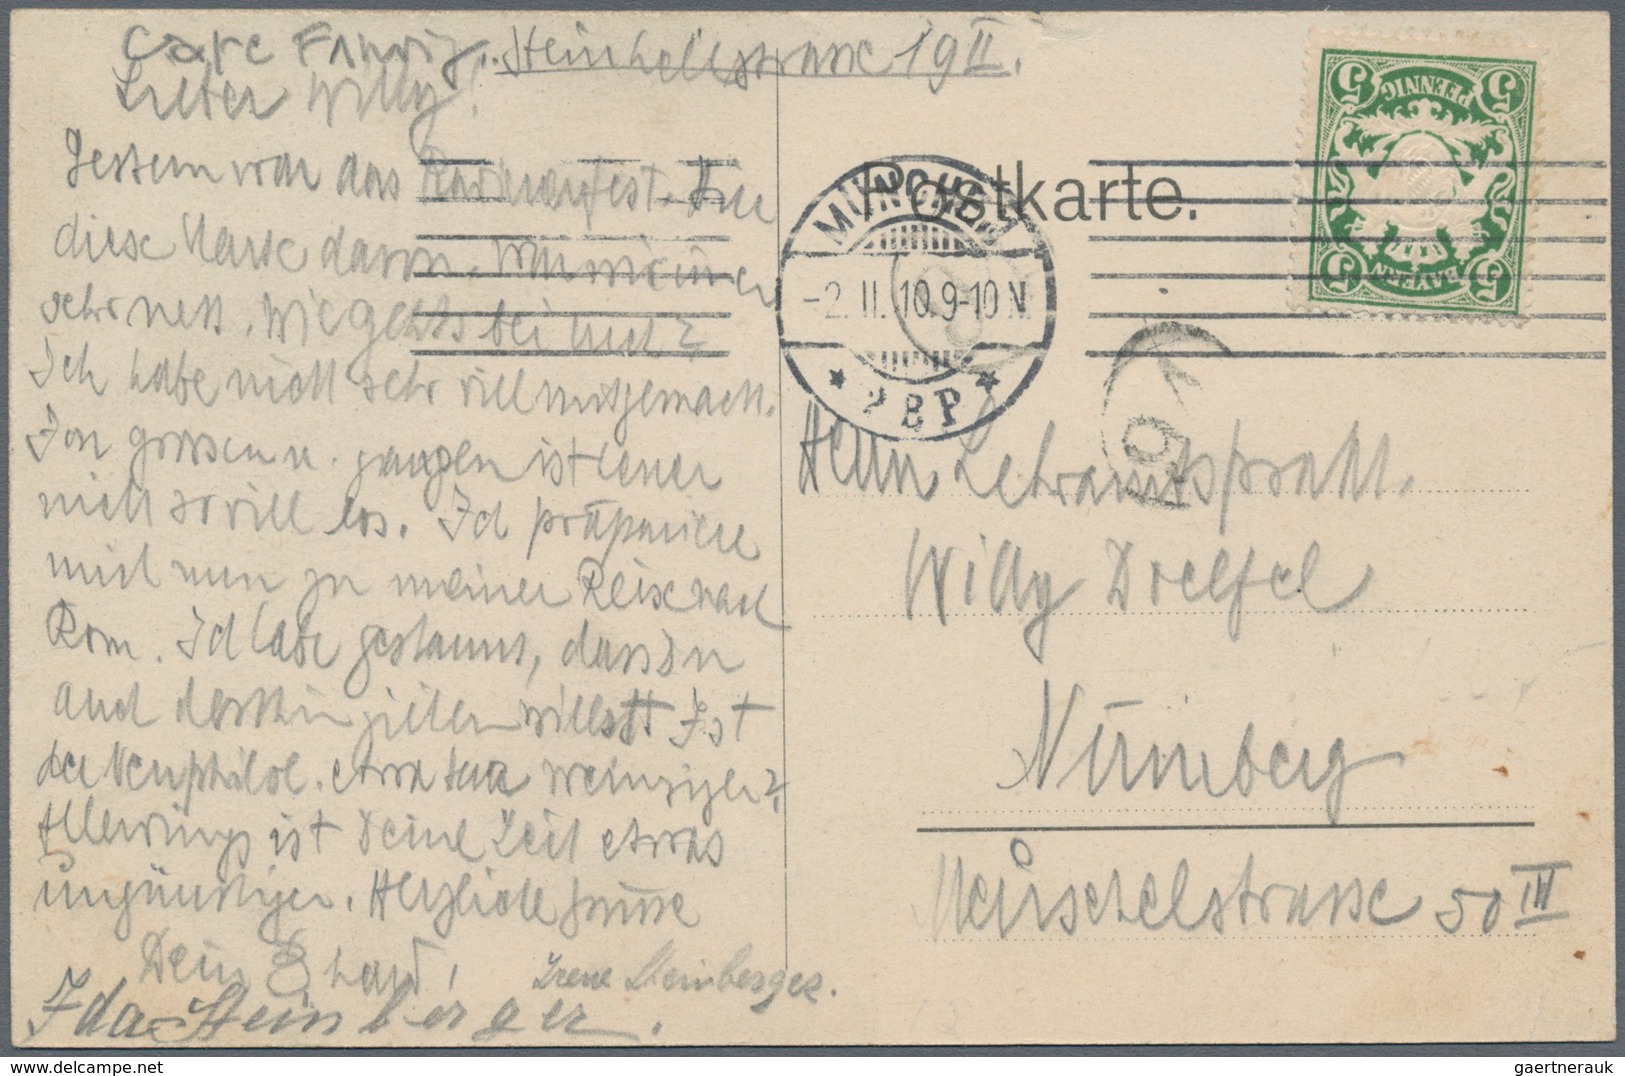 Cafe Fahrig. Steinheilstrasse 19 II.
Lieber Willy!
Gestern war das Radierfest. Eine
diese Karte davon. War
sehr nett. Wie geht's bei Euch?
Ich habe nicht sehr vill mitgemacht.
Im grossen u. ganzen ist heuer
nicht so vill los. Ich präpariere
mich nun zu meiner Reise nach
Rom. Ich habe gestaunt, dass Du
auch dorthin zielen willst. Ist
der Neuphilol. etwa
Allerdings ist Deine Zeit etwas
ungünstiger. Herzliche Grüsse
Dein Ehard!
Irene Steinberger.
Ida Steinberger.
Postkarte.
MÜNCHEN
-2.II.10.9-10 N.
* 2 B.P. *
5 PFENNIG 5
5 BAYERN 5
Herrn Lehramtsprakt.
Willy Drechsel
Nürnberg
Meuschelstrasse 50 III
gaertnerauk @ delcampe.net